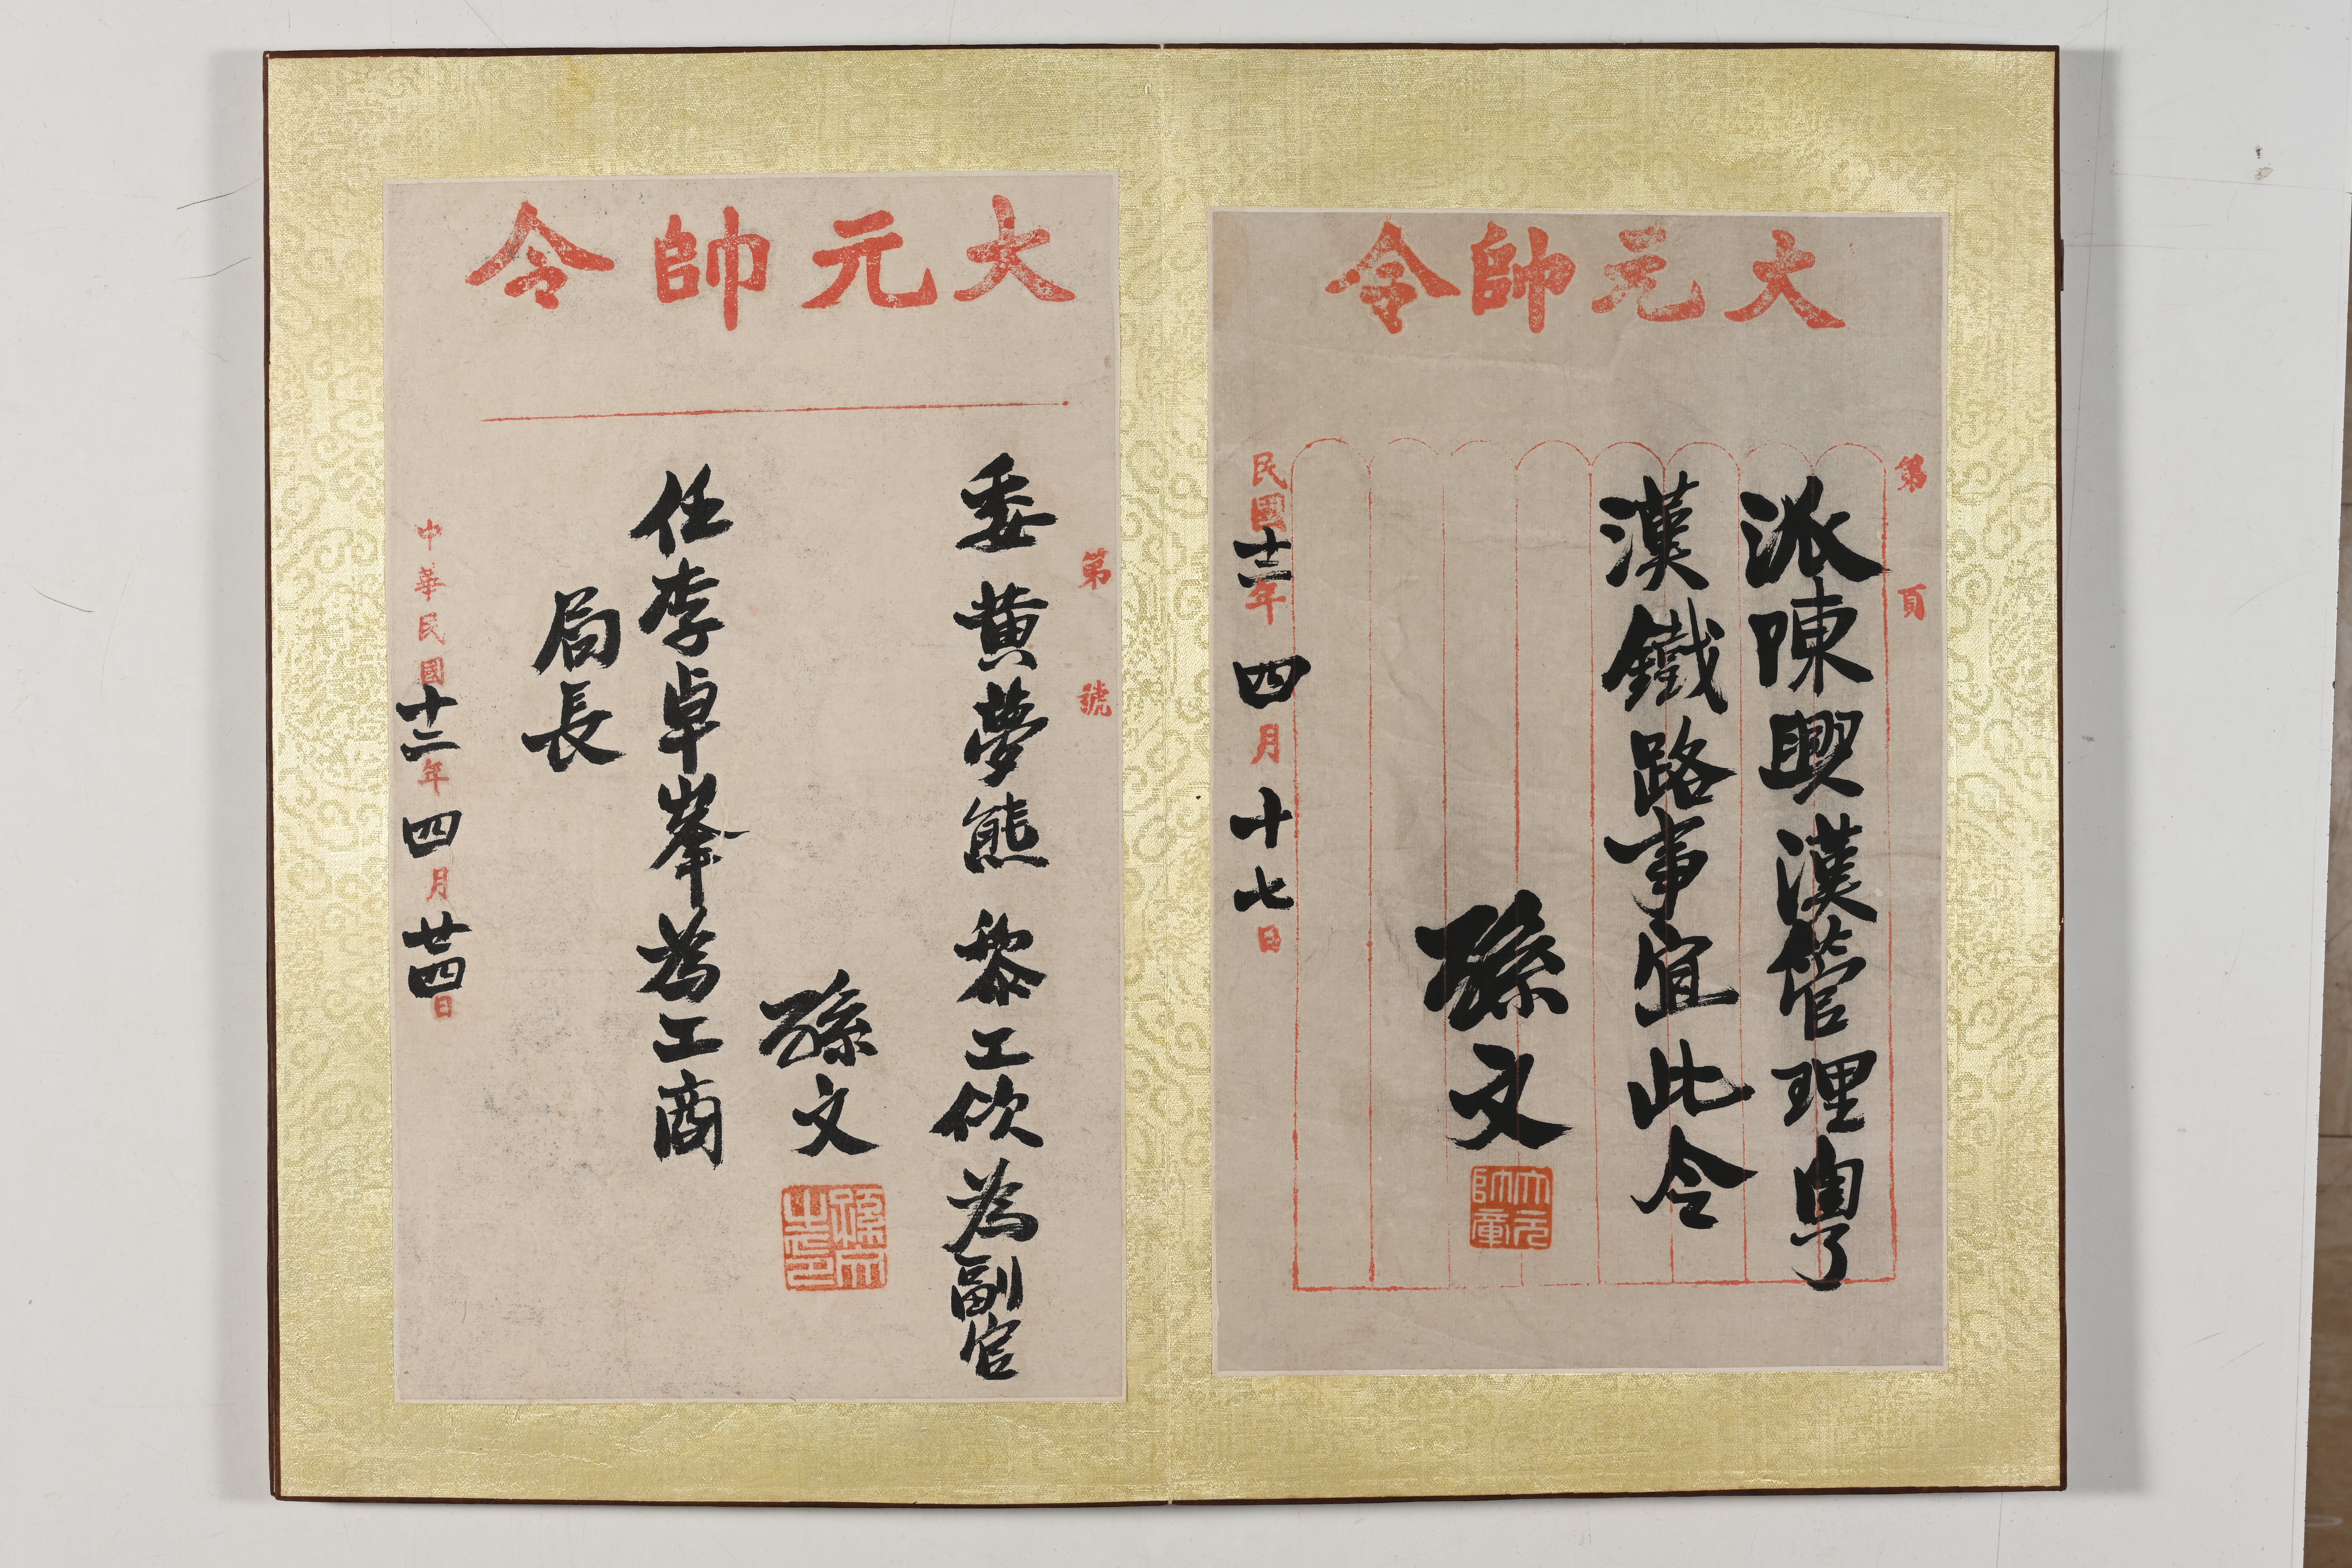 大元帥令
第 頁
派陳興漢管理粵
漢鐵路事宜此令
孫文
大元帥章
民國十二年四月十七日
大元帥令
第 號
委黃夢熊 黎工佽為副官
孫文
孫文之印
任李卓峯為工商
局長
中華民國十二年四月廿四日